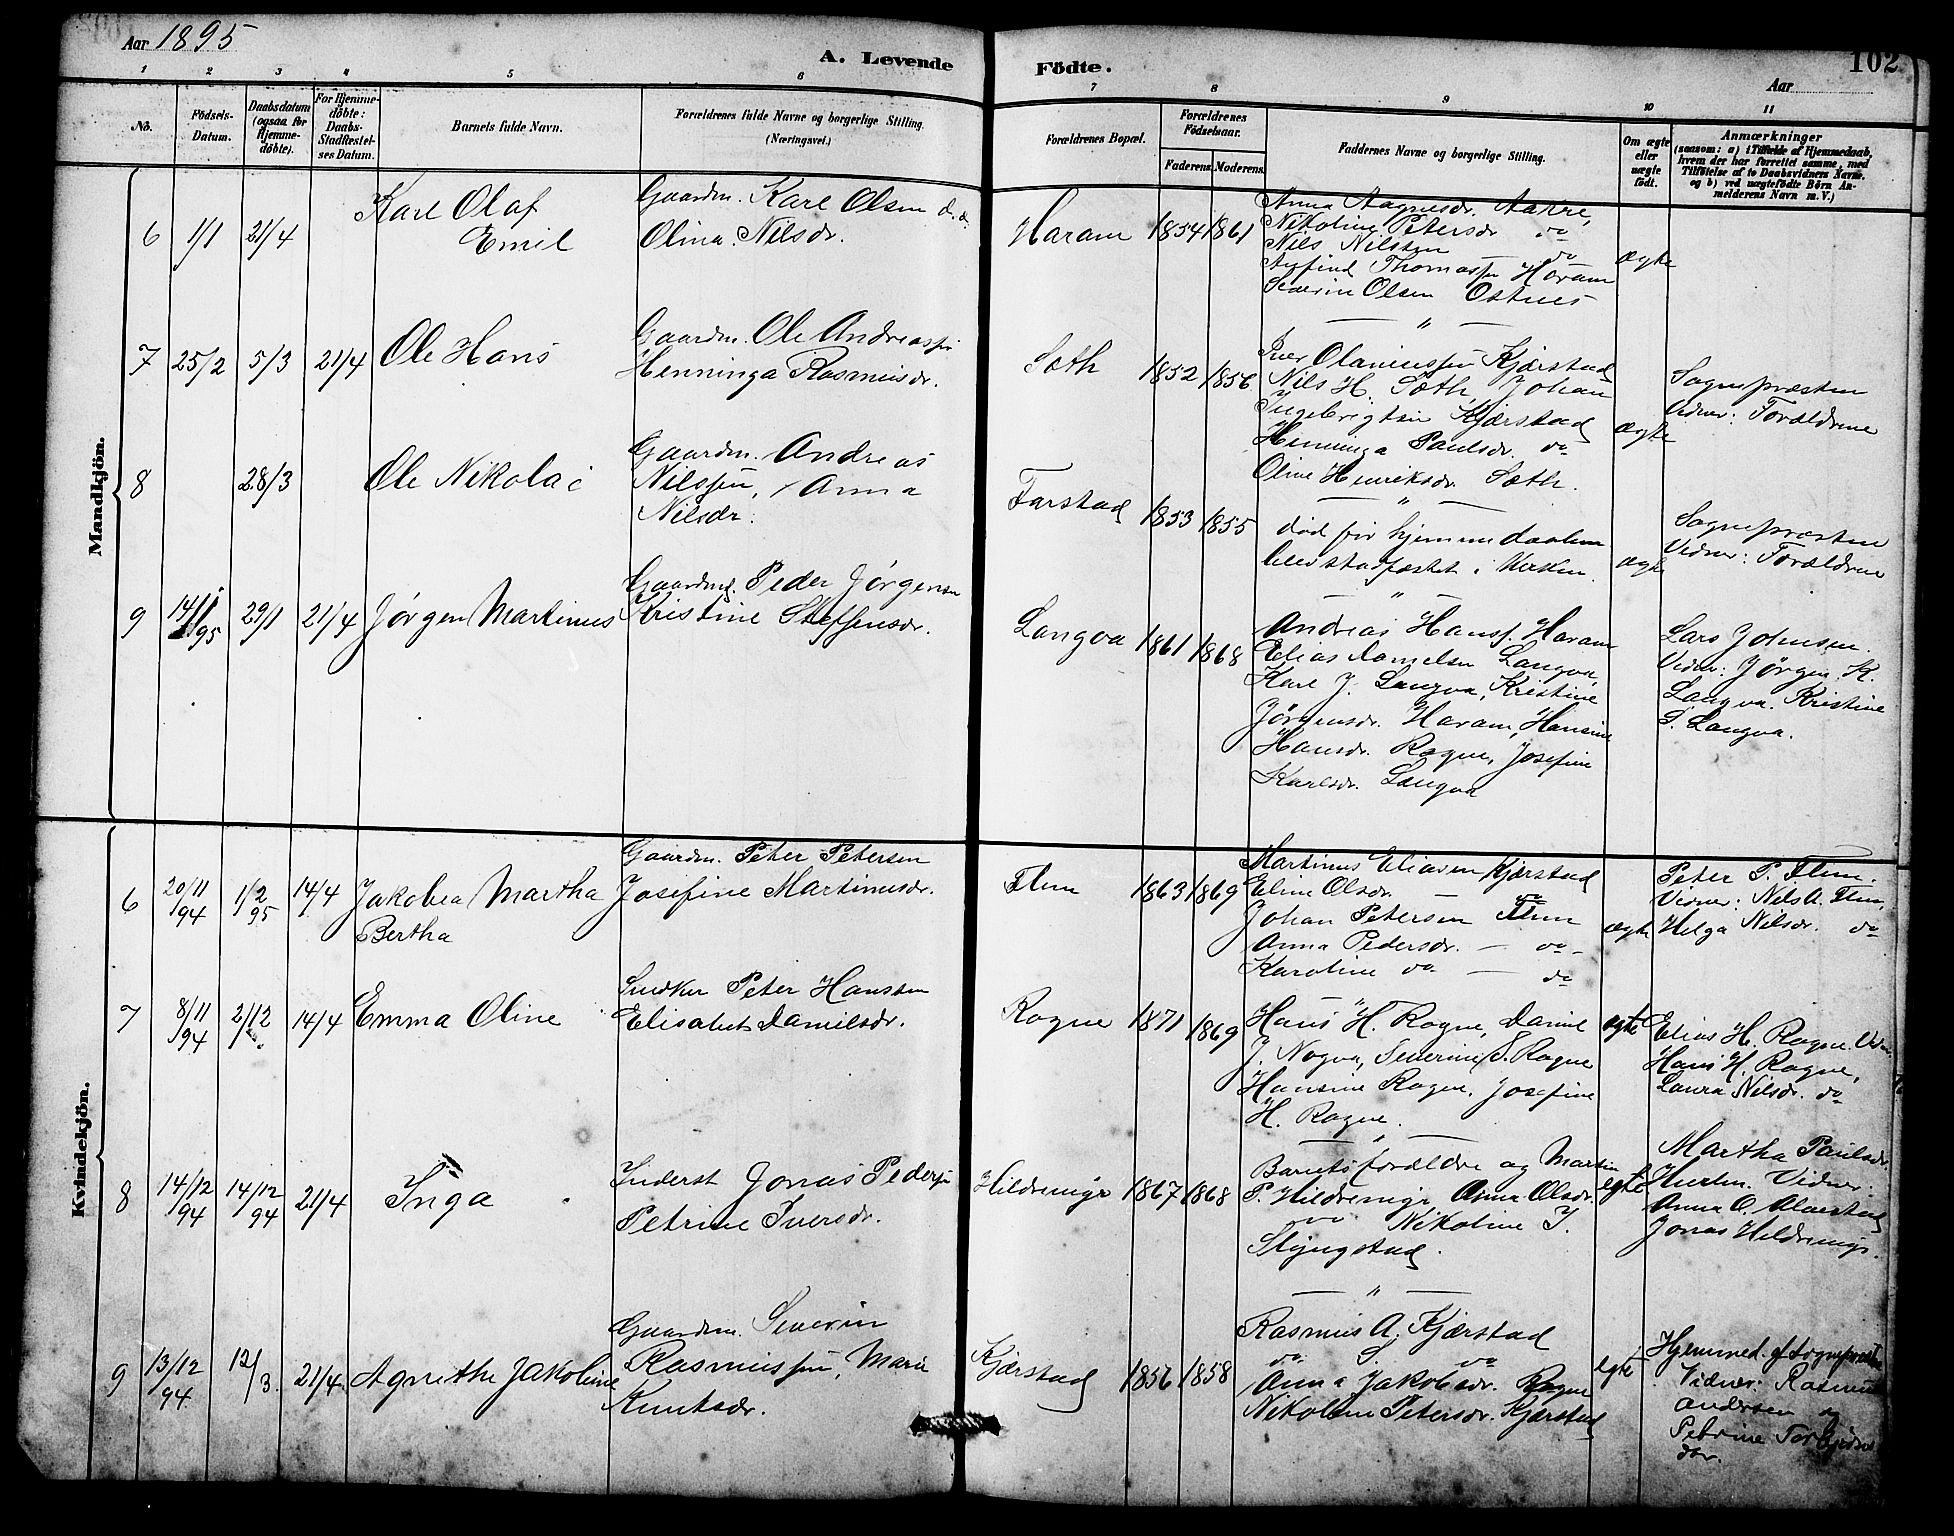 Aar 1895
A. Levende Födte.
102
Aar
1 2 3 4 5 6 7 8 9 10 11
No.
Födsels-Datum.
Daabsdatum (ogsaa for Hjemme-döbte).
For Hjemme-döbte: Daabs-Stadfæstel-ses Datum.
Barnets fulde Navn.
Forældrenes fulde Navne og borgerlige Stilling.
(Næringsvei.)
Forældrenes Bopæl.
Forældrenes Födselsaar.
Faderens. Moderens.
Faddernes Navne og borgerlige Stilling.
Om ægte eller uægte födt.
Anmærkninger
(saasom: a) i Tilfælde af Hjemmedaab,
hvem der har forrettet samme, med
Tilföielse af to Daabsvidners Navne,
og b) ved uægtefödte Börn An-
melderens Navn m. V.)
Mandkjön.
6 1/1 21/4
Karl Olaf
Emil
Gaardm. Karl Olsen
Olina Nilsdr.
Haram 1854 1861
Anna Aagnesdr. Aakre,
Nikoline Petersdr do
Nils Nilsen do
Thomassen Haram
Severin Olsen Ostnes
ægte
7 25/2 5/3 21/4
Ole Hans
Gaardm. Ole Andreassen
Henninga Rasmusdr.
Sæth 1852 1856
Iver Olaniussen Kjærstad
Nils H. Sæth, Johan
Ingebrigtsen Kjærstad
Henninga Paulsdr. do
Oline Henriksdr. Sæth.
ægte
Sognepræsten
Vidner: Forældrene
8 28/3
Ole Nikolai
Gaardm. Andreas
Nilssen, Anna
Nilsdr.
Farstad 1853 1855
død før hjemmedaaben
blev stadfæstet i Kirken.
ægte
Sognepræsten
Vidner: Forældrene
9 14/1 95 29/1 21/4
Jørgen Martinus
Gaardm. Peder Jørgensen
Kristine Steffensdr.
Langva 1861 1868
Andreas Hanss. Haram
Elias Danielsen Langva,
Karl J. Langva, Kristine
Jørgensdr. Haram, Hansine
Hansdr. Rogne, Josefine
Karlsdr. Langva
Lars Johnsen.
Vidner: Jørgen K.
Langva. Kristine
S. Langva.
Kvindekjön.
6 20/11 94 1/2 95 14/4
Jakobea Martha
Bertha
Gaardm. Peter Petersen
Josefine Martinusdr.
Flem 1863 1869
Martinus Eliasen Kjærstad
Eline Olsdr. — do
Johan Petersen Flem
Anna Pedersdr. — do
Karoline do — do
ægte
Peter P. Flem.
Vidner: Nils A. Flem,
Helga Nilsdr. do
7 8/11 94 2/12 14/4
Emma Oline
Snedker Peter Hanssen
Elisabet Danielsdr.
Rogne 1871 1869
Hans H. Rogne, Daniel
J. Nogva, Severine S. Rogne
Hansine Rogne, Josefine
H. Rogne.
egte
Elias H. Rogne. Vidn.
Hans H. Rogne,
Laura Nilsdr. do
8 14/12 94 14/12 94 21/4
Inga
Inderst Jonas Peders.
Petrine Iversdr.
Hildrenigr 1867 1868
Barnets forældre og Martin
P. Hildrenigr Anna Olsdr.
do Nikoline I.
Slyngstad.
egte
Martha Paulsdr.
Hurlen. Vidner:
Anna O. Alvestad
Jonas Hildrenigr.
9 13/12 94 12/3. 21/4
Agnethe Jakobine
Gaardm. Severin
Rasmussen, Marie
Knutsdr.
Kjærstad 1856 1858
Rasmus A. Kjærstad
do S. do
Anna Jakobsdr. Rogne
Nikoline Petersdr. Kjærstad
egte
Hjemmed. af Sognepræst.
Vidner: Rasmus
Andersen og
Petrine Torbjørns
dor.